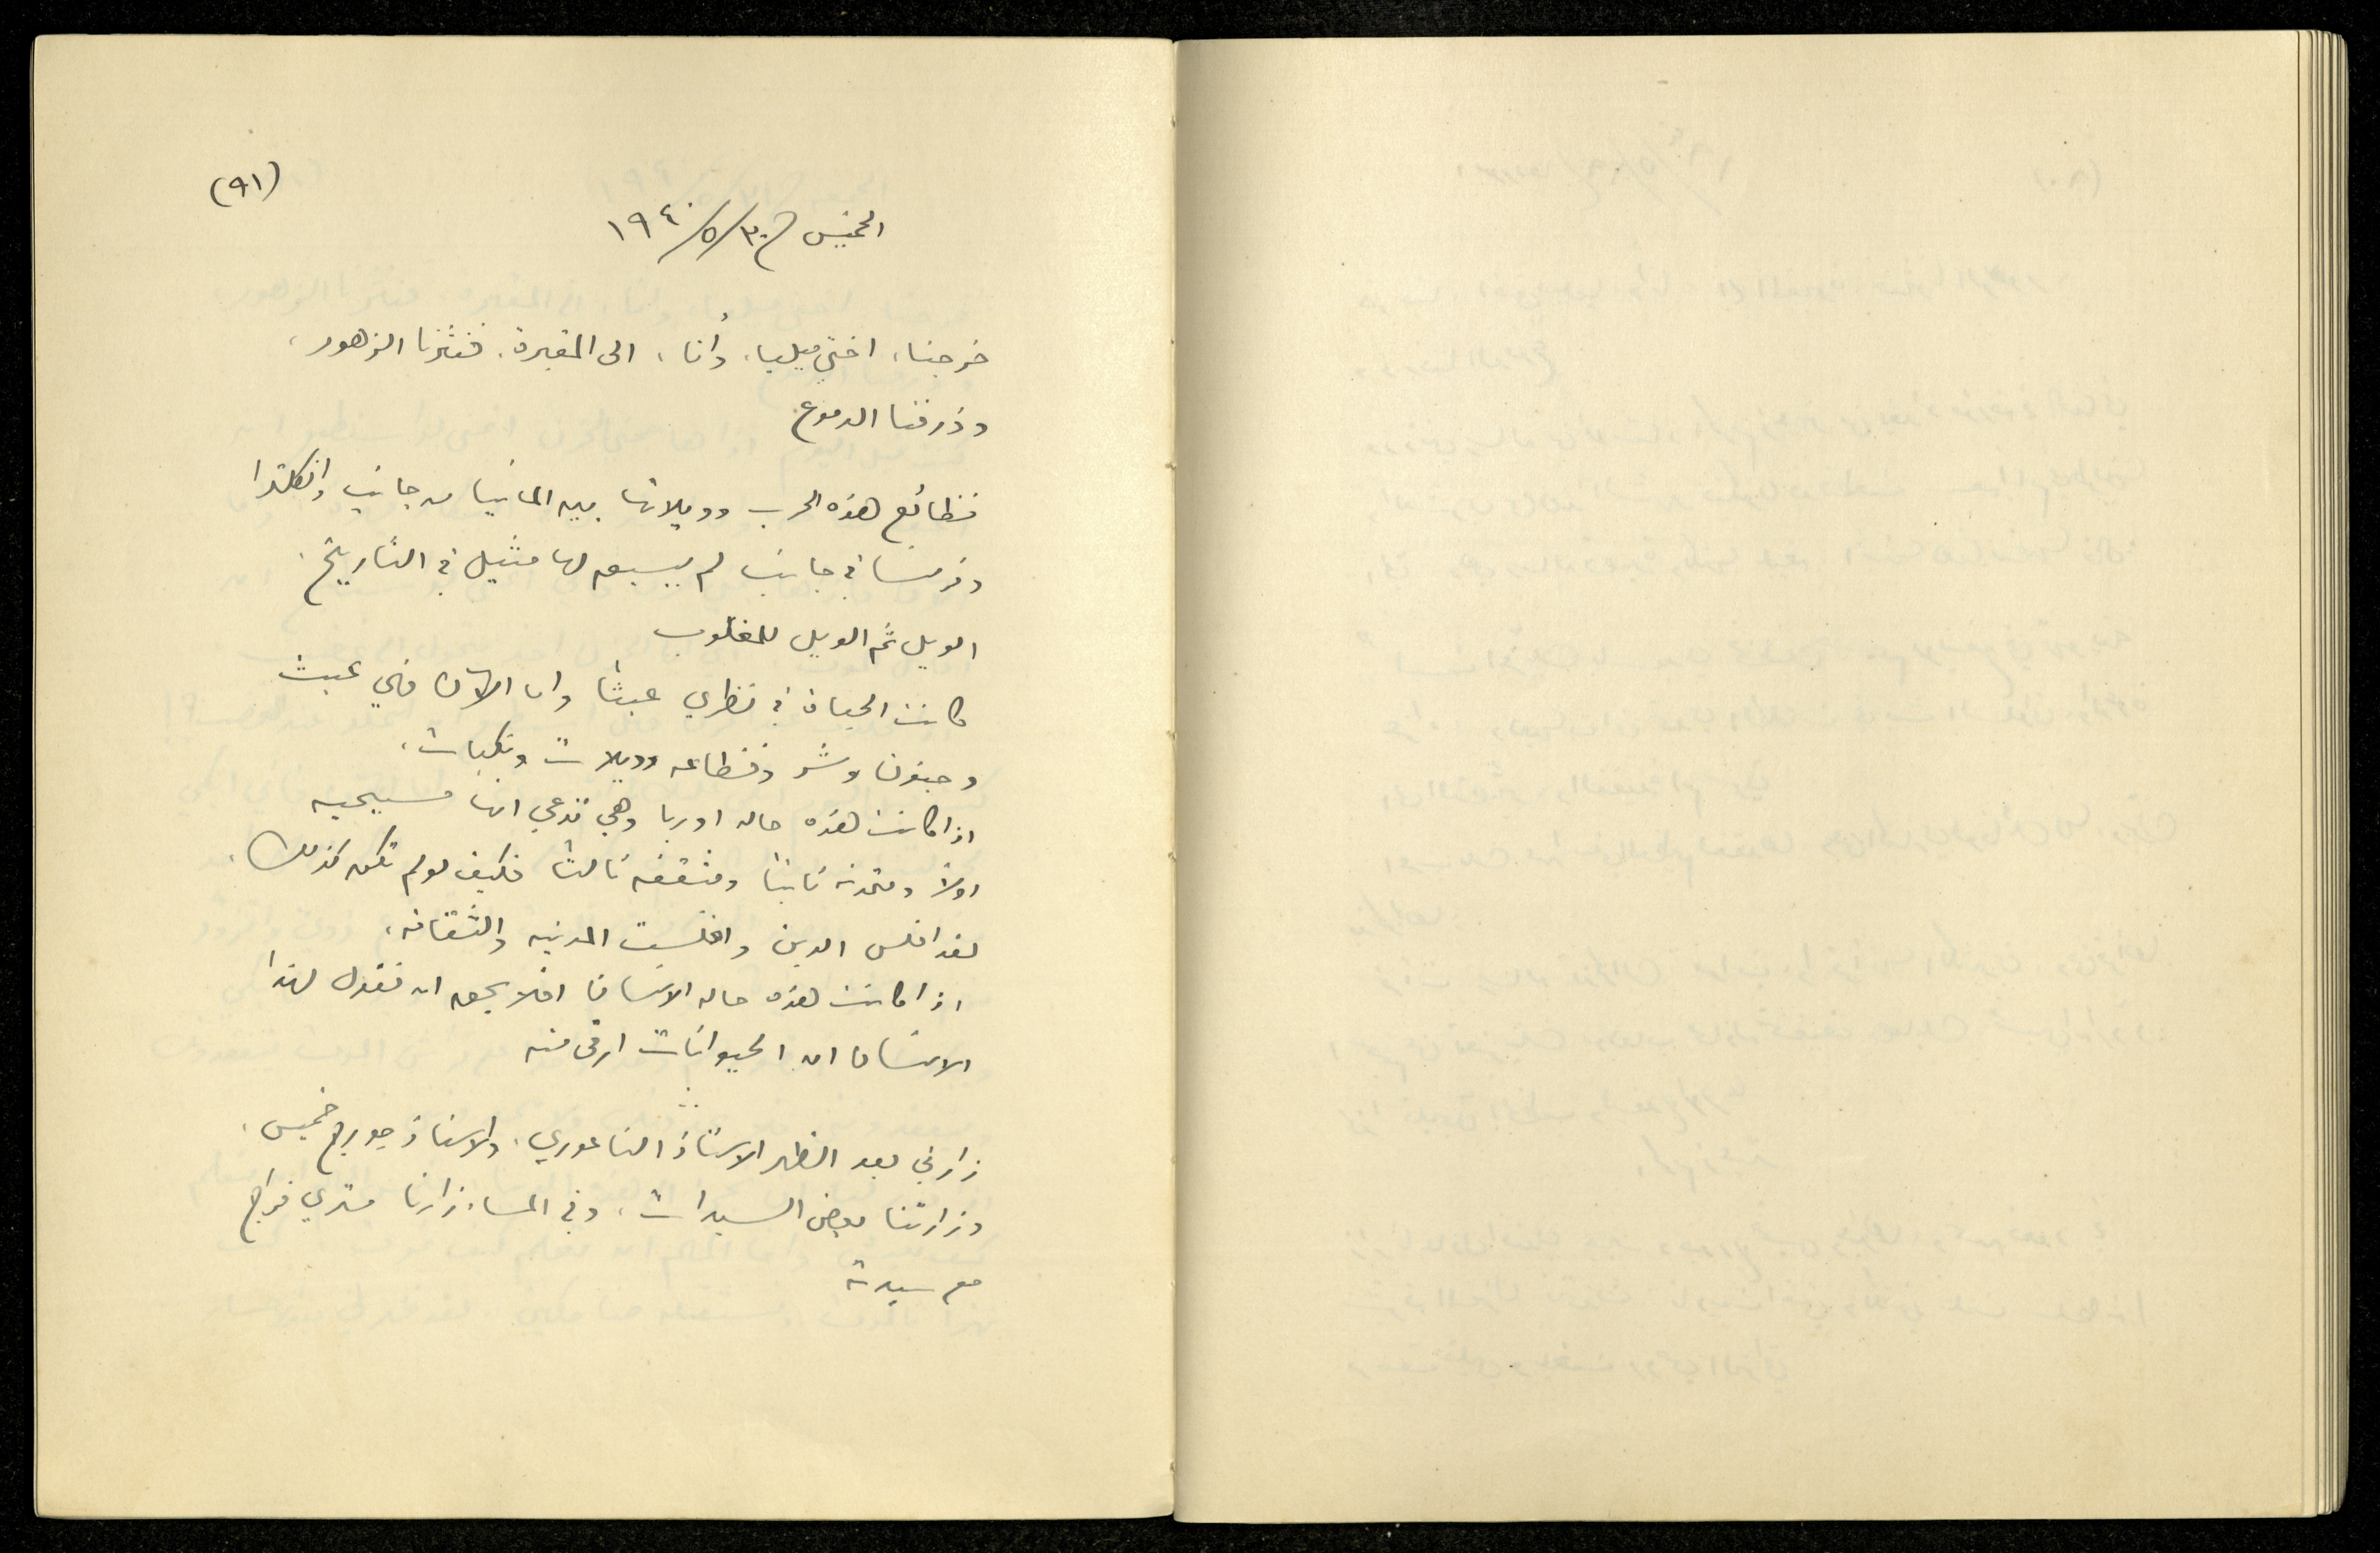 (٩١)
الخميس في ٣٠/٥/١٩٤٠
خرجنا، اختي ميليا، وأنا، الى المقبرة، فنثرنا الزهور،
وذرفنا الدموع.
فظائع هذه الحرب وويلاتها بين المانيا من جانب وانكلترا
وفرنسا في جانب لم يسبق لها مثيل في التاريخ.
الويل ثم الويل للمغلوب
كانت الحياة في نظري عبثاً واما الآن فهي عبث
وجنون وشر وفظاعه وويلات ونكبات.
اذا كانت هذه حاله اوربا وهي تدعي انها مسيحيه
اولاً ومتمدنه ثانياً ومثقفه ثالثاً فكيف لو لم تكن كذلك.
لقد افلس الدين وافلست المدنيه والثقافه،
اذا كانت هذه حاله الانسان افلا يحق ان نقول لهذا
الانسان ان الحيوانات ارقى منه
زارني بعد الظهر الاستاذ الناعوري، والاستاذ جورج خميس.
وزارتنا بعض السيدات، وفي المساء زارنا متري فراج
مع سيدته